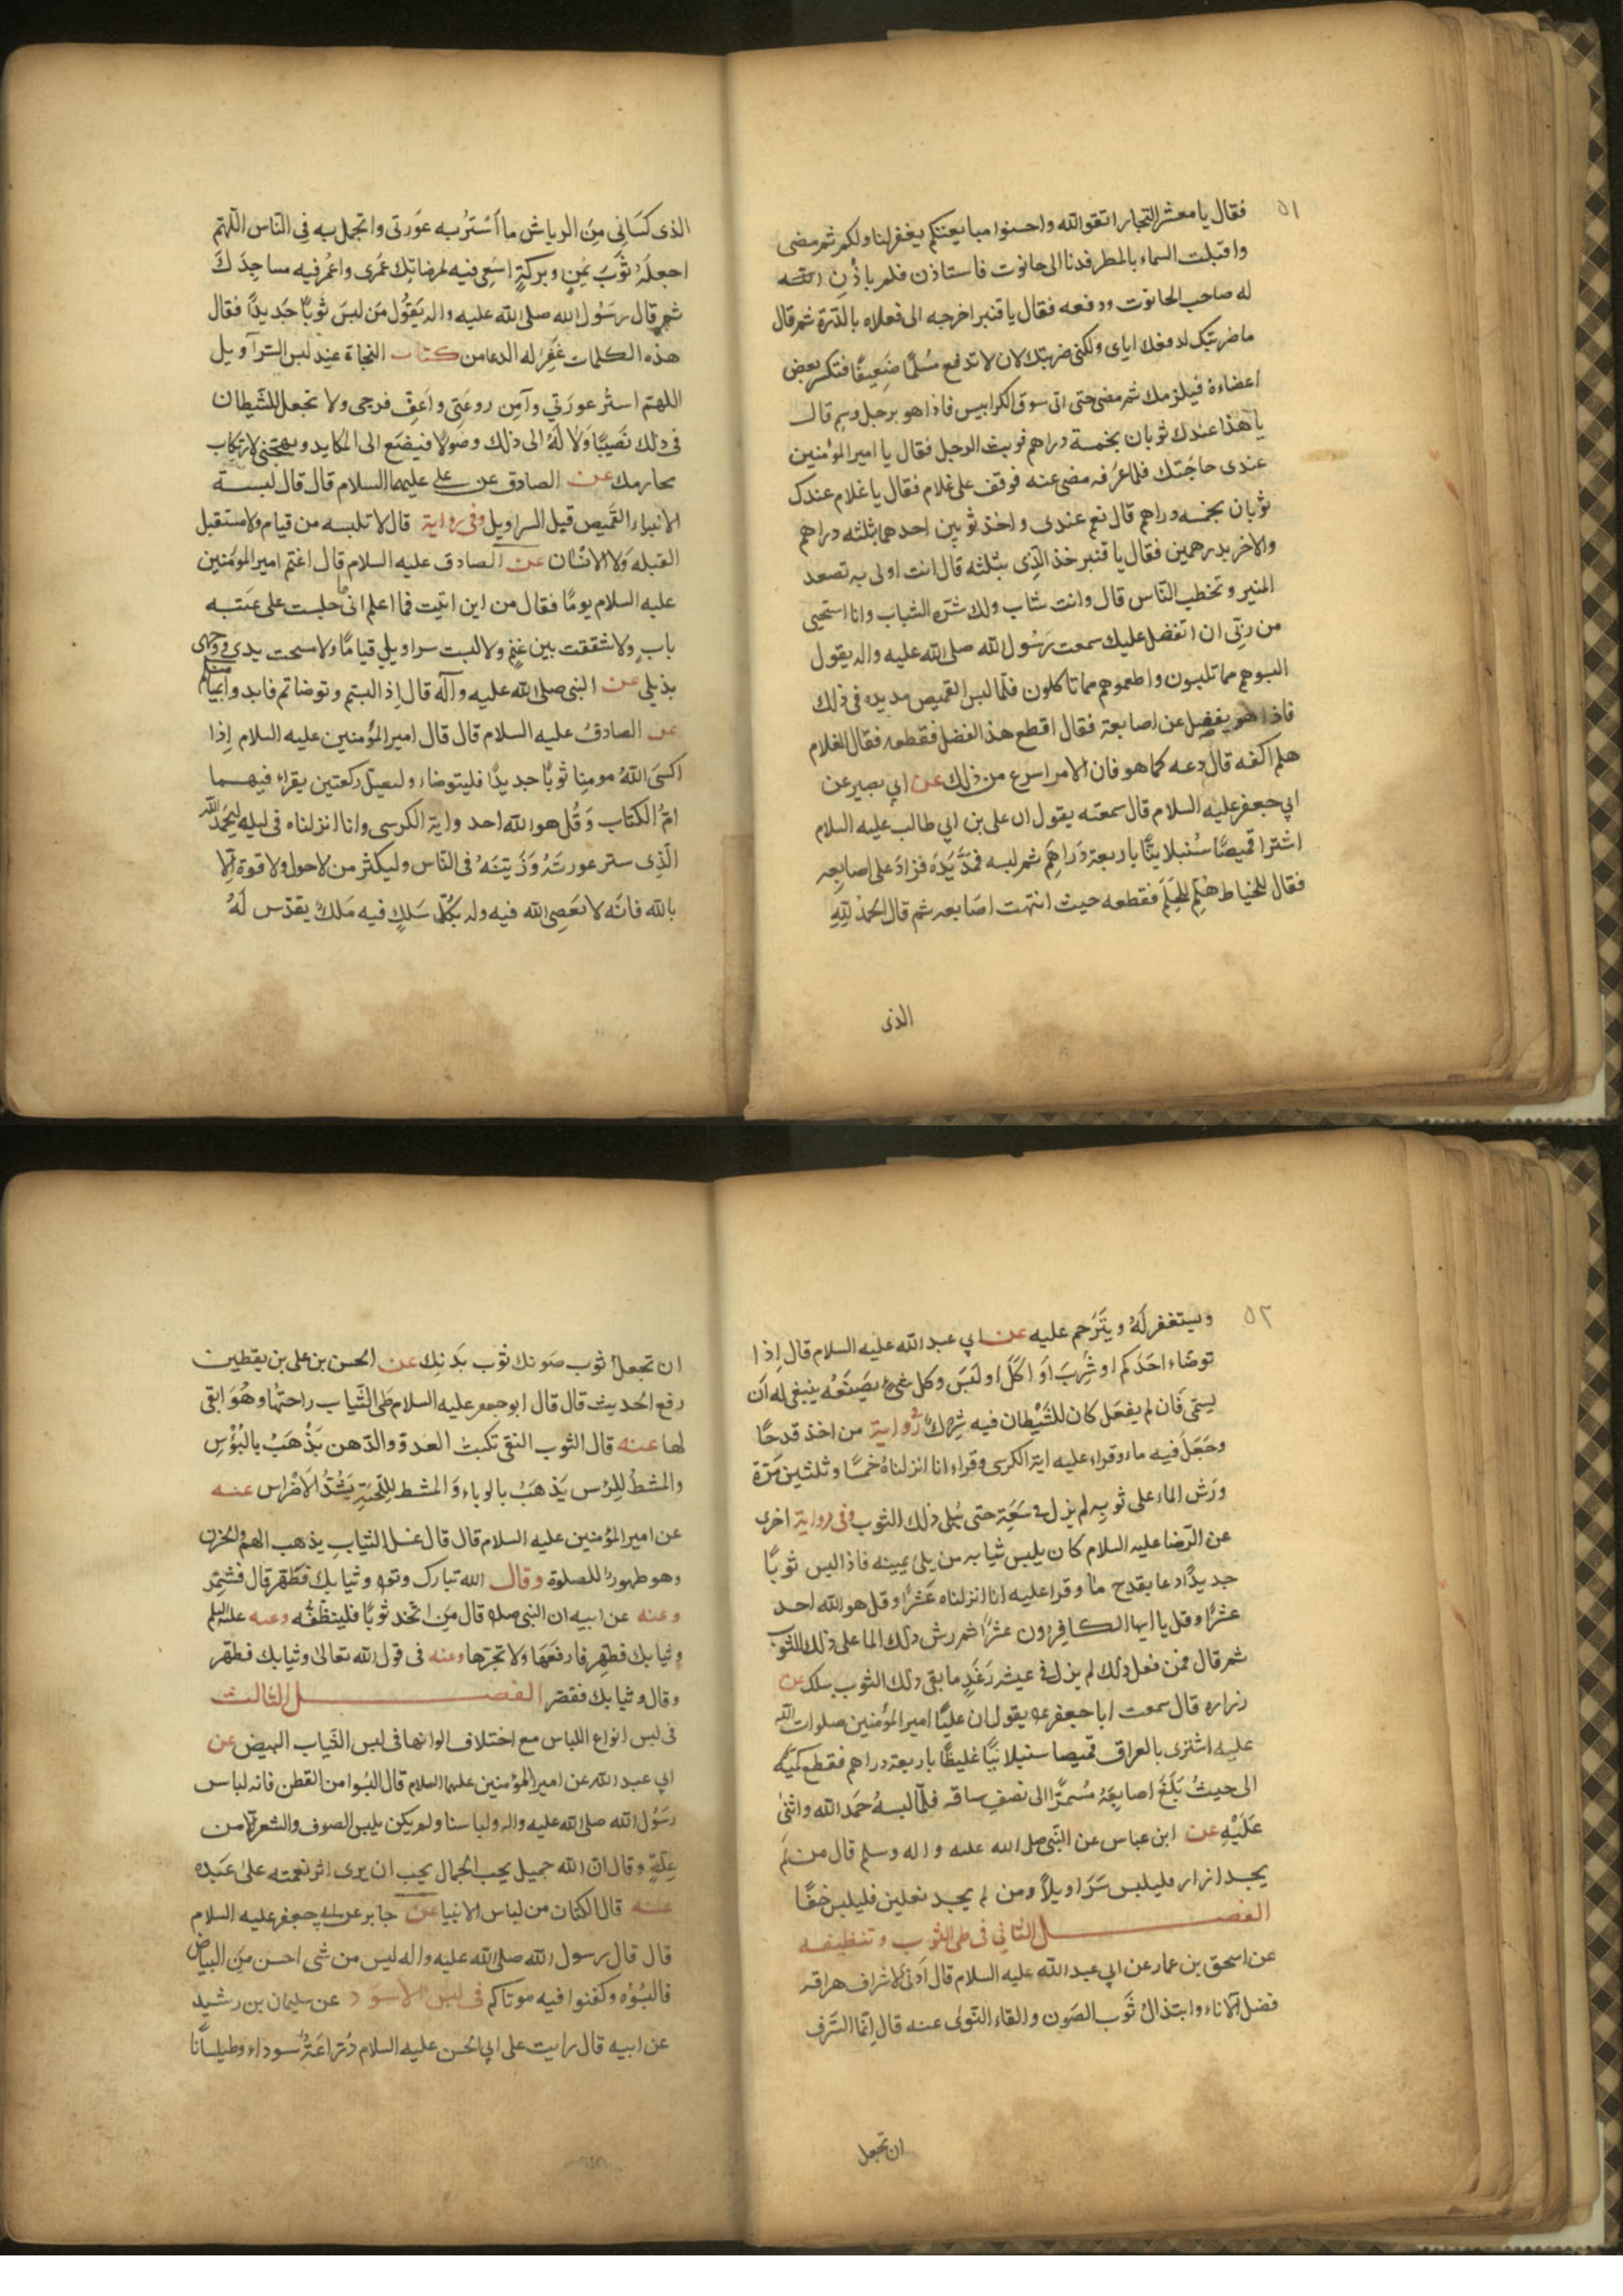 ٥١
فقال يا معشر التجار اتقو الله واحسنوا مبايعتكم يغفر لنا ولكم ثم مضى
واقبلت السماء بالمطر فدنا الى حانوت فاستاذن فلم ياذن
له صاحب الحانوت ودفعه فقال يا قنبر اخرجه الى فعلاه بالدّرة ثم قال
ما ضربتك لدفعك اياى ولكنى ضربتك لان لا تدفع مُسْلمًا ضَعِيفًا فتكسر بعض
اعضاءه فيلزمك ثم مضى حتى اتى سوق الكرابيس فاذا هو برجل وسيم قال
يا هذا عندك ثوبان بخمسة دراهم فوثب الرجل فقال يا امير المؤمنين
عندى حاجَتك فلما عرَفه مضى عنه فوقف على غلام فقال يا غلام عندك
ثوبان بخمسه دراهم قال نعم عندى واخذ ثوبين احدهما بثلثه دراهم
والاخر بدرهمين فقال يا قنبر خذ الّذى بثلثه قال انت اولى به تصعد
المنبر وتخطب النّاس قال وانت شاب ولك شرّه الشباب وانا استحيى
من ربّى ان اتفضل عليك سمعت رَسُول الله صلى الله عليه واله يقول
البسوهم مما تلبسون واطعموهم مما تاكلون فلمّا لبس القميص مد يده فى ذلك
فاذا هو يفضل عن اصابعه فقال اقطع هذا الفضل فقطعه فقال الغلام
هلم اكفه قال دعه كما هو فان الامر اسرع من ذلك عن ابي بصير عن
ابي جعفر عليه السلام قال سمعته يقول ان على بن ابي طالب عليه السلام
اشترا قميصًا سُنبلانيًّا باربعة دَراهَم ثم لبسه فمدَّ يَدَه فزادَ على اصابِعِه
فقال للخياط هَلُم فقطعه حيث انتهت اصَابعه ثم قال الحمدُ لِلّهِ
الذى
الذى كسَانِى مِنَ الرياش ما اَسْتَرُ به عَورَتى واتجمل به فِى النّاس اللّهمّ
اجعلهُ ثوَبَ يُمنٍ وبركةٍ اسَعِى فيه لمرضاتِك عُمرى واعمُر فيه مساجِدَكَ
ثم قال رَسُول الله صلى الله عليه واله يَقُول مَن لبسَ ثوبًا جَديدًا فقال
هذه الكلمات غُفِرَ له الدعا من كتاب النجاة عِند لبس السَّرآويل
اللهمّ استُر عورَتي وآمِن روعَتى واَعِفّ فرجى ولا تجعل للشّيطان
فى ذلك نصَيبًا وَلا لهُ الى ذلك وصُولًا فيضَع الى المكايد ويهيّجنى لارتكاب
محارمك عن الصادق عن على عليهما السلام قال قال لبسة
الانبياء القَميص قبل السراويل وفى رواية قال لا تلبسه من قيام ولا مستقبل
القبله وَلا الانسَان عن الصادق عليه السلام قال اغتم امير المؤمنين
عليه السلام يومًا فقال من اين اتيت فما اعلم انى جلست على عَتبه
بابٍ ولا شققت بين غنمٍ ولا لبست سراويلي قيامًا ولا مسحت يدى ووجهى
بذيلى عن النبى صلى الله عليه وآله قال اِذا لبستم وتوضاتم فابدوا بميامنكم
عن الصادق عليه السلام قال قال امير المؤمنين عليه السلام اِذا
اكسَى اللهُ مومِنا ثوبًا جديدًا فليتوضاء وليصلّ ركعتين يقراء فيهما
امّ الكتاب وَقُل هو الله احد واية الكرسى وانا انزلناه فى ليله وليَحمِد الله
الّذِى ستر عورتَهُ وَزَينَهُ فى النّاس وليكثر من لاحول ولا قوة اِلّا
بالله فانّه لا يَعَصِى الله فيه وله بكلّ سَلكٍ فيه مَلكٌ يقدّس لَهُ
٥٢
ويستغفر لَهُ ويتَرَحم عليه عن ابي عبد الله عليه السلام قال اِذا
توضّاء احَدَكم او شَرِبَ اَو اكَلَ او لَبَسَ وكل شئٍ يصَنعُه ينبغى له اَن
يسمّى فَان لم يفعَل كان للشَّيْطان فيه شِركٌ رواية من اخذ قدحًا
وجَعَلَ فيه ماء وقراء عليه اية الكرسى وقراء انا انزلناهُ خَمسًا وثلثين مَرّة
ورَش الماء على ثوبِه لم يزل فى سَعَةٍ حتى يَبلى ذلك الثوب وفى رواية اخرى
عن الرّضا عليه السلام كان يلبس ثيابه من يلى يمينه فاذا لبس ثوبًا
جديدًا دعا بقدح ما وقرا عليه انا انزلناه عَشرًا وقل هو الله احد
عشرًا وقل يا ايها الكافرون عشرًا ثم رش ذلك الما على ذلك الثوب
ثم قال فمن فعل ذلك لم يزل فى عيش رَغَدٍ ما بقى ذلك الثوب سلك عن
زراره قال سمعت ابا جعفر ع يقول ان عليًا امير المؤمنين صلوات الله
عليه اشترى بالعراق قميصا سنبلانيًا غليظًا باربعة دراهم فقطع كمَّيه
الى حيثُ بَلَغَ اصابِعُهُ مُشمرًّا الى نصَفِ ساقه فلمّا لبسهُ حمَد الله واثنى
عَلَيْهِ عن ابن عباس عن النّبى صلى الله عليه واله وسلم قال من لَم
يجد ازار فليلبس سَرَاويلًا ومن لم يجد نعلين فليلبس خفًّا
الفصل الثانى فى طى الثوب وتنظيفه
عن اسحق بن عمار عن ابي عبد الله عليه السلام قال اَدنى الاسراف هراقه
فضل الاناء وابتذالُ ثَوب الصَون والقاء النّوى عنه قال اِنمّا السَّرف
ان تجعل
ان تجعلَ ثوب صَونك ثوَب بَذلِك عن الحسن بن على بن يقطين
رفع الحديث قال قال ابو جعفر عليه السلام طَى الثّياب راحتها وهُوَ ابقى
لها عنه قال الثوب النقى تكبت العَدوّ والدّهن يَذْهَبُ بالبُؤسِ
والمشطُ للِرّس يَذهَبُ بالوباء وَالمشط لِلّحَيَةِ يَشُدّ الاَضراس عنه
عن امير المؤمنين عليه السلام قال قال غسل الثيابِ يذهب الهم والحزن
وهو طهورٌ للصلوة وقال الله تبارك وتع وثيابك فطَهّر قال فشمّر
وعنه عن ابيه ان النبى صلعم قال مَن اتخد ثوبًا فلينظّفُه وعنه عليه السلم
وثيابك فطهّر فارفَعَها وَلا تجرّها وعنه فى قول الله تعالى وثيابك فطهّر
وقال وثيابك فقصّر الفصل الثالث
فى لبس انواع اللباس مع اختلاف الوانها فى لبس الثياب البيض عن
ابي عبد الله عن امير المؤمنين عليهما السلام قال البسُوا من القطن فانه لباس
رَسُول الله صلى الله عليه واله ولباسنا ولم يكن يلبس الصوف والشعر اِلّا من
عِلةٍ وقال انّ الله جميل يحب الجمال يحب ان يرى اثر نعمته على عَبده
عنه قال الكتان من لباس الانبيا عن جابر عن ابي جعفر عليه السلام
قال قال رسول الله صلى الله عليه واله ليس من شى احسن مَن البياض
فالبسُوْه وكفنوا فيه موتاكم فى لبس الاسود عن سليمان بن رشيد
عن ابيه قال رايت على ابي الحسن عليه السلام دُرّاعَةً سوداء وطيلسانًا